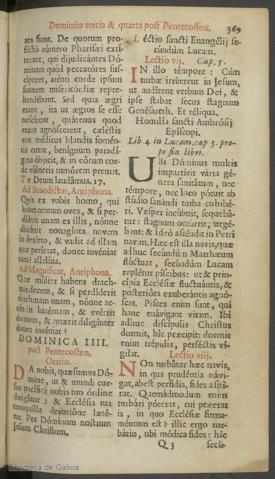 Dominica tertia & quarta post Pentecosten.
369
ares sunt. De quorum pro-
fectò número Pharisæi extí-
terant, qui dijudicántes Dó-
minum quòd peccatóres sus-
cíperet, arénti corde ipsum
fontem misericórdiæ repre-
hendébant. Sed quia ægri
erant, ita ut ægros se esse
nescírent, quátenus quod
erant agnóscerent, cæléstis
eos médicus blandis fomén-
tis curat, benígnum paradí-
gma óbjicit, & in eórum cor-
de vúlneris tumórem premit.
Te Deum laudámus. 17.
Ad Benedictus, Antiphona.
Quis ex vobis homo, qui
habet centum oves, & si per-
díderit unam ex illis, nónne
dimíttit nonagínta novem
in desérto, & vadit ad illam
quæ períerat, donec invéniat
eam? allelúia.
Ad Magnificat, Antiphona.
Quæ múlier habens drach-
mas decem, & si perdíderit
drachmam unam, nónne ac-
céndit lucérnam, & evérrit
domum, & quærit diligénter
donec invéniat?
DOMINICA IIII.
post Pentecosten.
Oratio.
DA nobis, quǽsumus Dó-
mine, ut & mundi cur-
sus pacíficè nobis tuo órdine
dirigátur; & Ecclésia tua
tranquílla devotióne læté-
tur. Per Dóminum nostrum
Jesum Christum.
Léctio sancti Euangélij se-
cúndùm Lucam.
Lectio vij. Cap. 5.
IN illo témpore: Cùm
turbæ irrúerent in Jesum,
ut audírent verbum Dei, &
ipse stabat secus stagnum
Genésareth. Et réliqua.
Homilía sancti Ambrósij
Epíscopi.
Lib. 4 in Lucam, cap 5. pro-
pe fin libri.
UBi Dóminus multis
impartívit vária gé-
nera sanitátum, nec
témpore, nec loco pótuit ab
stúdio sanándi turba cohibé-
ri. Vesper incúbuit, sequebán-
tur: stagnum occúrrit, urgé-
bant: & ídeò ascéndit in Petri
navim. Hæc est illa navis, quæ
adhuc secúndùm Matthæum
flúctuat, secúndùm Lucam
replétur píscibus: ut & prin-
cípia Ecclésiæ fluctuántis, &
posterióra exuberántis agnó-
scas. Pisces enim sunt, qui
hanc enávigant vitam. Ibi
adhuc discípulis Christus
dormit, hîc prǽcipit: dormit
enim trépidis, perféctis ví-
gilat.
Lectio viij.
NOn turbátur hæc navis,
in qua prudéntia návi-
gat, abest perfídia, fides aspí-
rat. Quemádmodum enim
turbári póterat, cui præerat
is, in quo Ecclésiæ firma-
méntum est? illic ergo tur-
bátio, ubi módica fides: hîc
Q 5
secú-
Biblioteca de Galicia